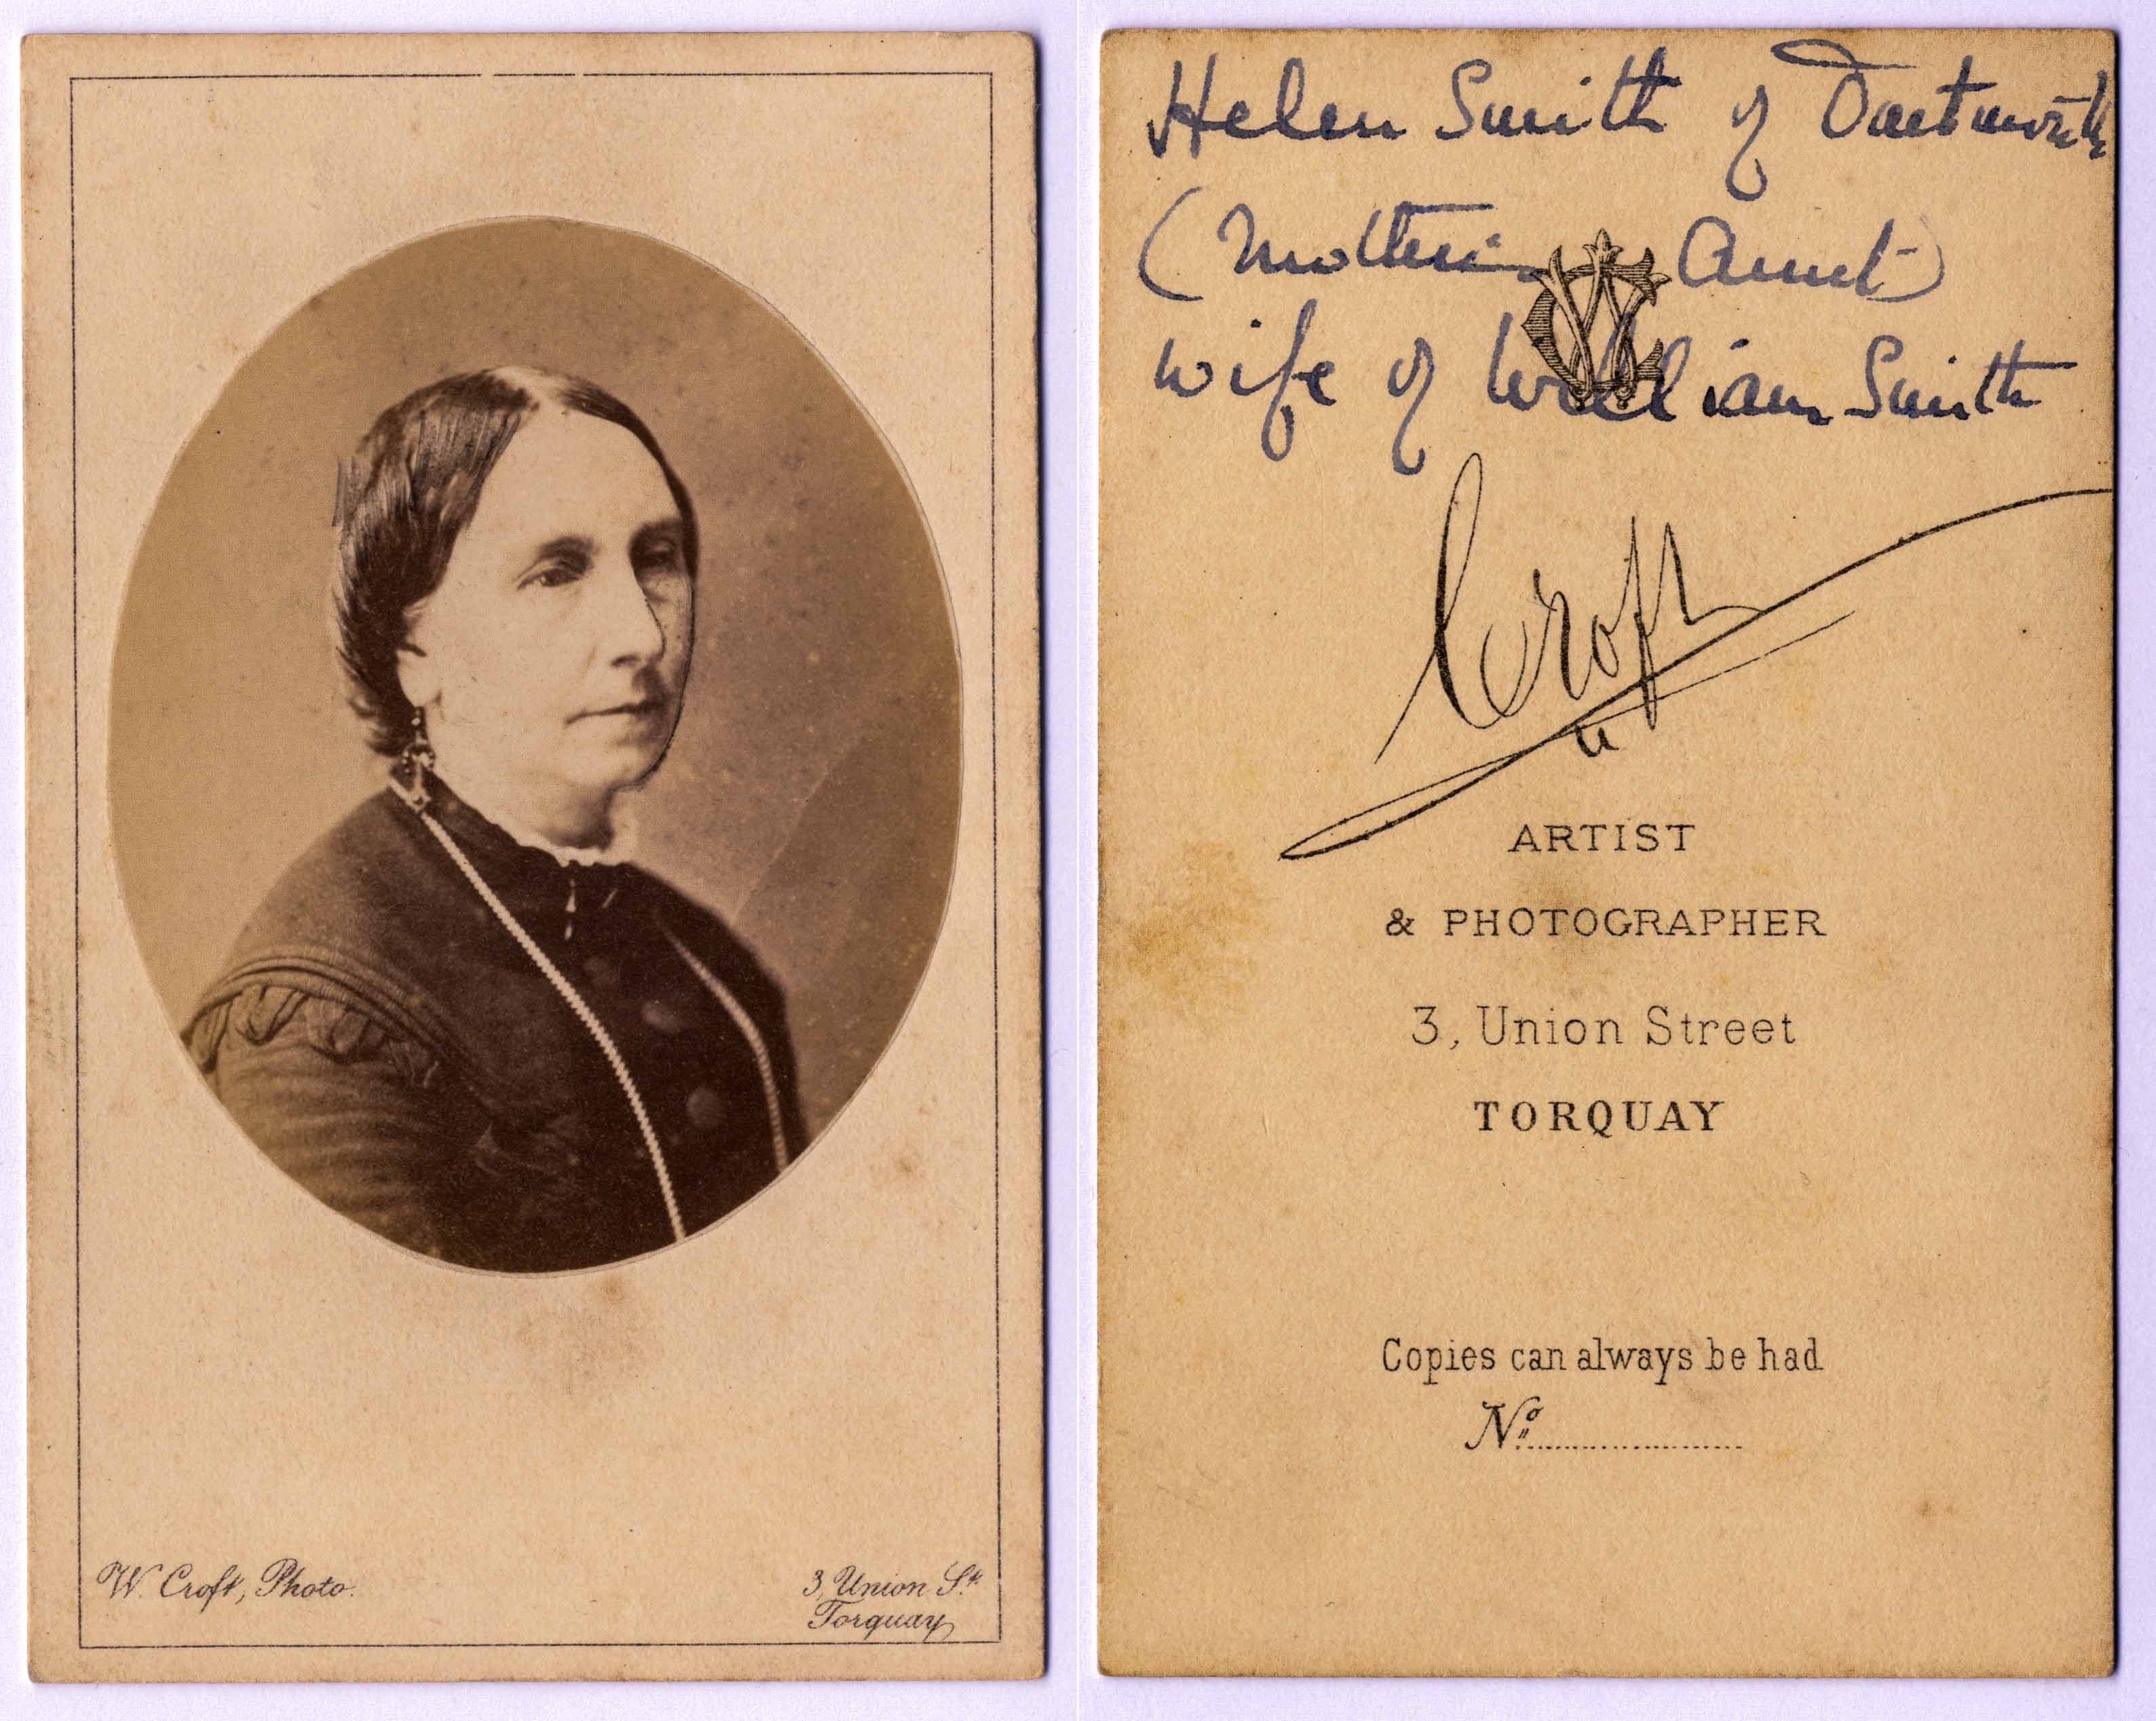 W. Croft, Photo.
3, Union St.
Torquay
Helen Smith of Dartmouth
(Mother's Aunt)
wife of William Smith
Croft
ARTIST
& PHOTOGRAPHER
3, Union Street
TORQUAY
Copies can always be had
No.